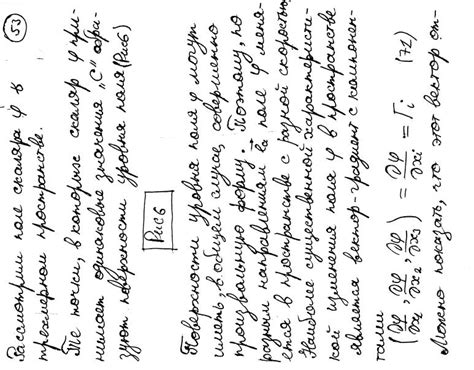 53
Рассмотрим поле скаляра φ в
трехмерном пространстве.
Те точки, в которых скаляр φ при-
нимает одинаковые значения "С" обра-
зуют поверхности уровня поля (Рис6)
Рис6
Поверхности уровня поля φ могут
иметь, в общем случае, совершенно
произвольную форму. Поэтому, по
разным направлениям поле φ меня-
ется в пространстве с разной скоростью.
Наиболее существенной характеристи-
кой изменения поля φ в пространстве
является вектор-градиент с компонен-
тами
(∂φ/∂x₁, ∂φ/∂x₂, ∂φ/∂x₃) = ∂φ/∂xᵢ = Γᵢ (71)
Можно показать, что этот вектор от-